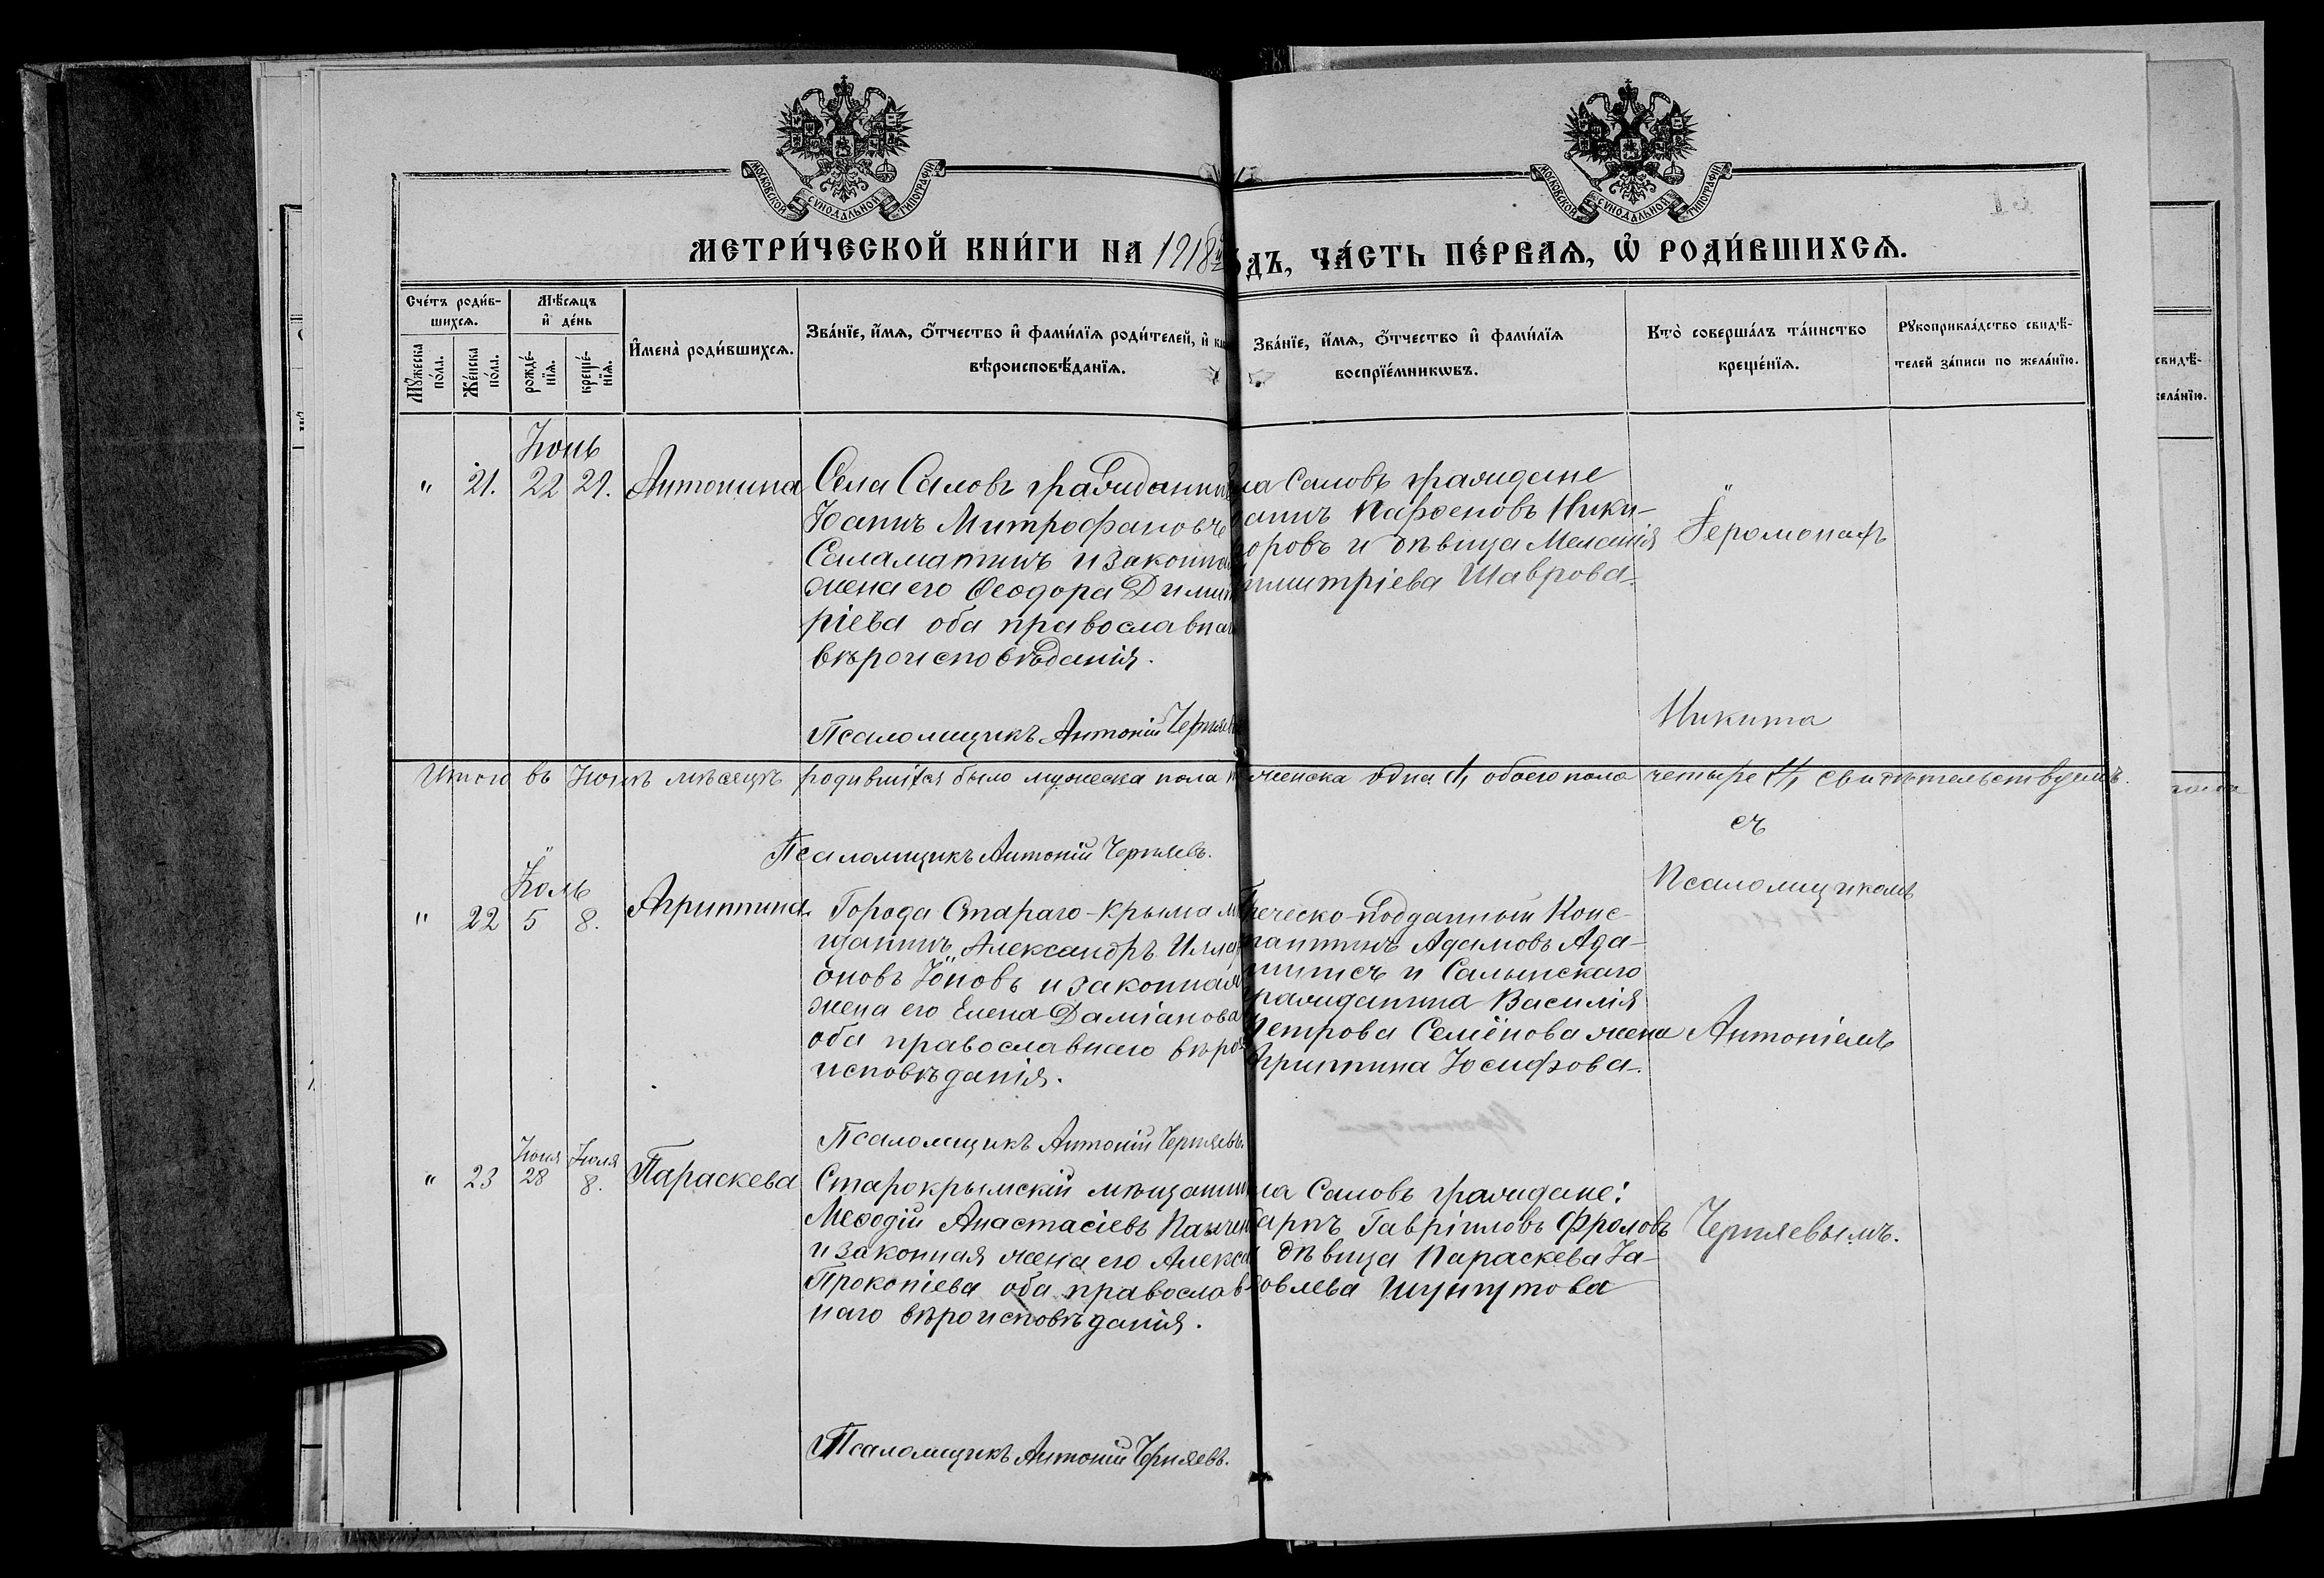 МОСКОВСКОЙ СѴНОДАЛЬНОЙ ТИПОГРАФІИ
МОСКОВСКОЙ СѴНОДАЛЬНОЙ ТИПОГРАФІИ
МЕТРИ́ЧЕСКОЙ КНИ́ГИ НА 1918й
ДЪ, ЧА́СТЬ ПЕ́РВАѦ, Ѿ РОДИ́ВШИХСѦ.
Сче́тъ роди́в-
шихсѧ.
Мѣ́сѧцъ
и҆ де́нь
Мꙋ́жеска
по́ла.
Же́нска
по́ла.
рожде́-
нїѧ.
креще́-
нїѧ.
И҆мена̀ роди́вшихсѧ.
Зва́нїе, и҆́мѧ, ѻ҆́тчество и҆ фами́лїѧ роди́телей, и҆
вѣроисповѣ́данїѧ.
Зва́нїе, и҆́мѧ, ѻ҆́тчество и҆ фами́лїѧ
воспрїе́мникѡвъ.
Кто̀ соверша́лъ та́инство
креще́нїѧ.
Рꙋкоприкла́дство свидѣ́-
телей за́писи по жела́нїю.
Іюнь
" 21. 22 29. Антонина
Села Саловъ гражданинъ
Іоаннъ Митрофановъ
Саламатинъ и законная
жена его Ѳеодора Димит
ріева оба православнаго
вѣроисповѣданія.
Псаломщикъ Антоній Черняевъ
ла Саловъ граждане
оаннъ Парѳеновъ Ники-
форовъ и дѣвица Меланія
Димитріева Шаврова.
Іеромонахъ
Никита
Итого въ Іюнѣ мѣсяцѣ родившихся было мужеска пола
женска одна /1/, обоего пола четыре /4/, свидѣтельствуемъ.
Псаломщикъ Антоній Черняевъ.
съ
Псаломщикомъ
Антоніемъ
Черняевымъ.
Іюль
" 22 5 8. Агриппина
Города Стараго-Крыма мѣ
щанинъ Александръ
оновъ Іоновъ и законная
жена его Елена Даміанова
оба православнаго вѣро-
исповѣданія.
Псаломщикъ Антоній Черняевъ.
Греческо-подданный Конс-
тантинъ Адамовъ Ада-
и Салынскаго
гражданина Василія
Петрова Семёнова жена
Агриппина Іосифова.
Іюня Іюля
" 23 28 8. Параскева
Старокрымскій мѣщанинъ
Меѳодій Анастасіевъ
и законная жена его Алекса
Прокопіева оба православ-
наго вѣроисповѣданія.
Псаломщикъ Антоній Черняевъ.
ла Саловъ граждане:
Гавріиловъ Фроловъ
и дѣвица Параскева Іа-
ковлева Шуншутова